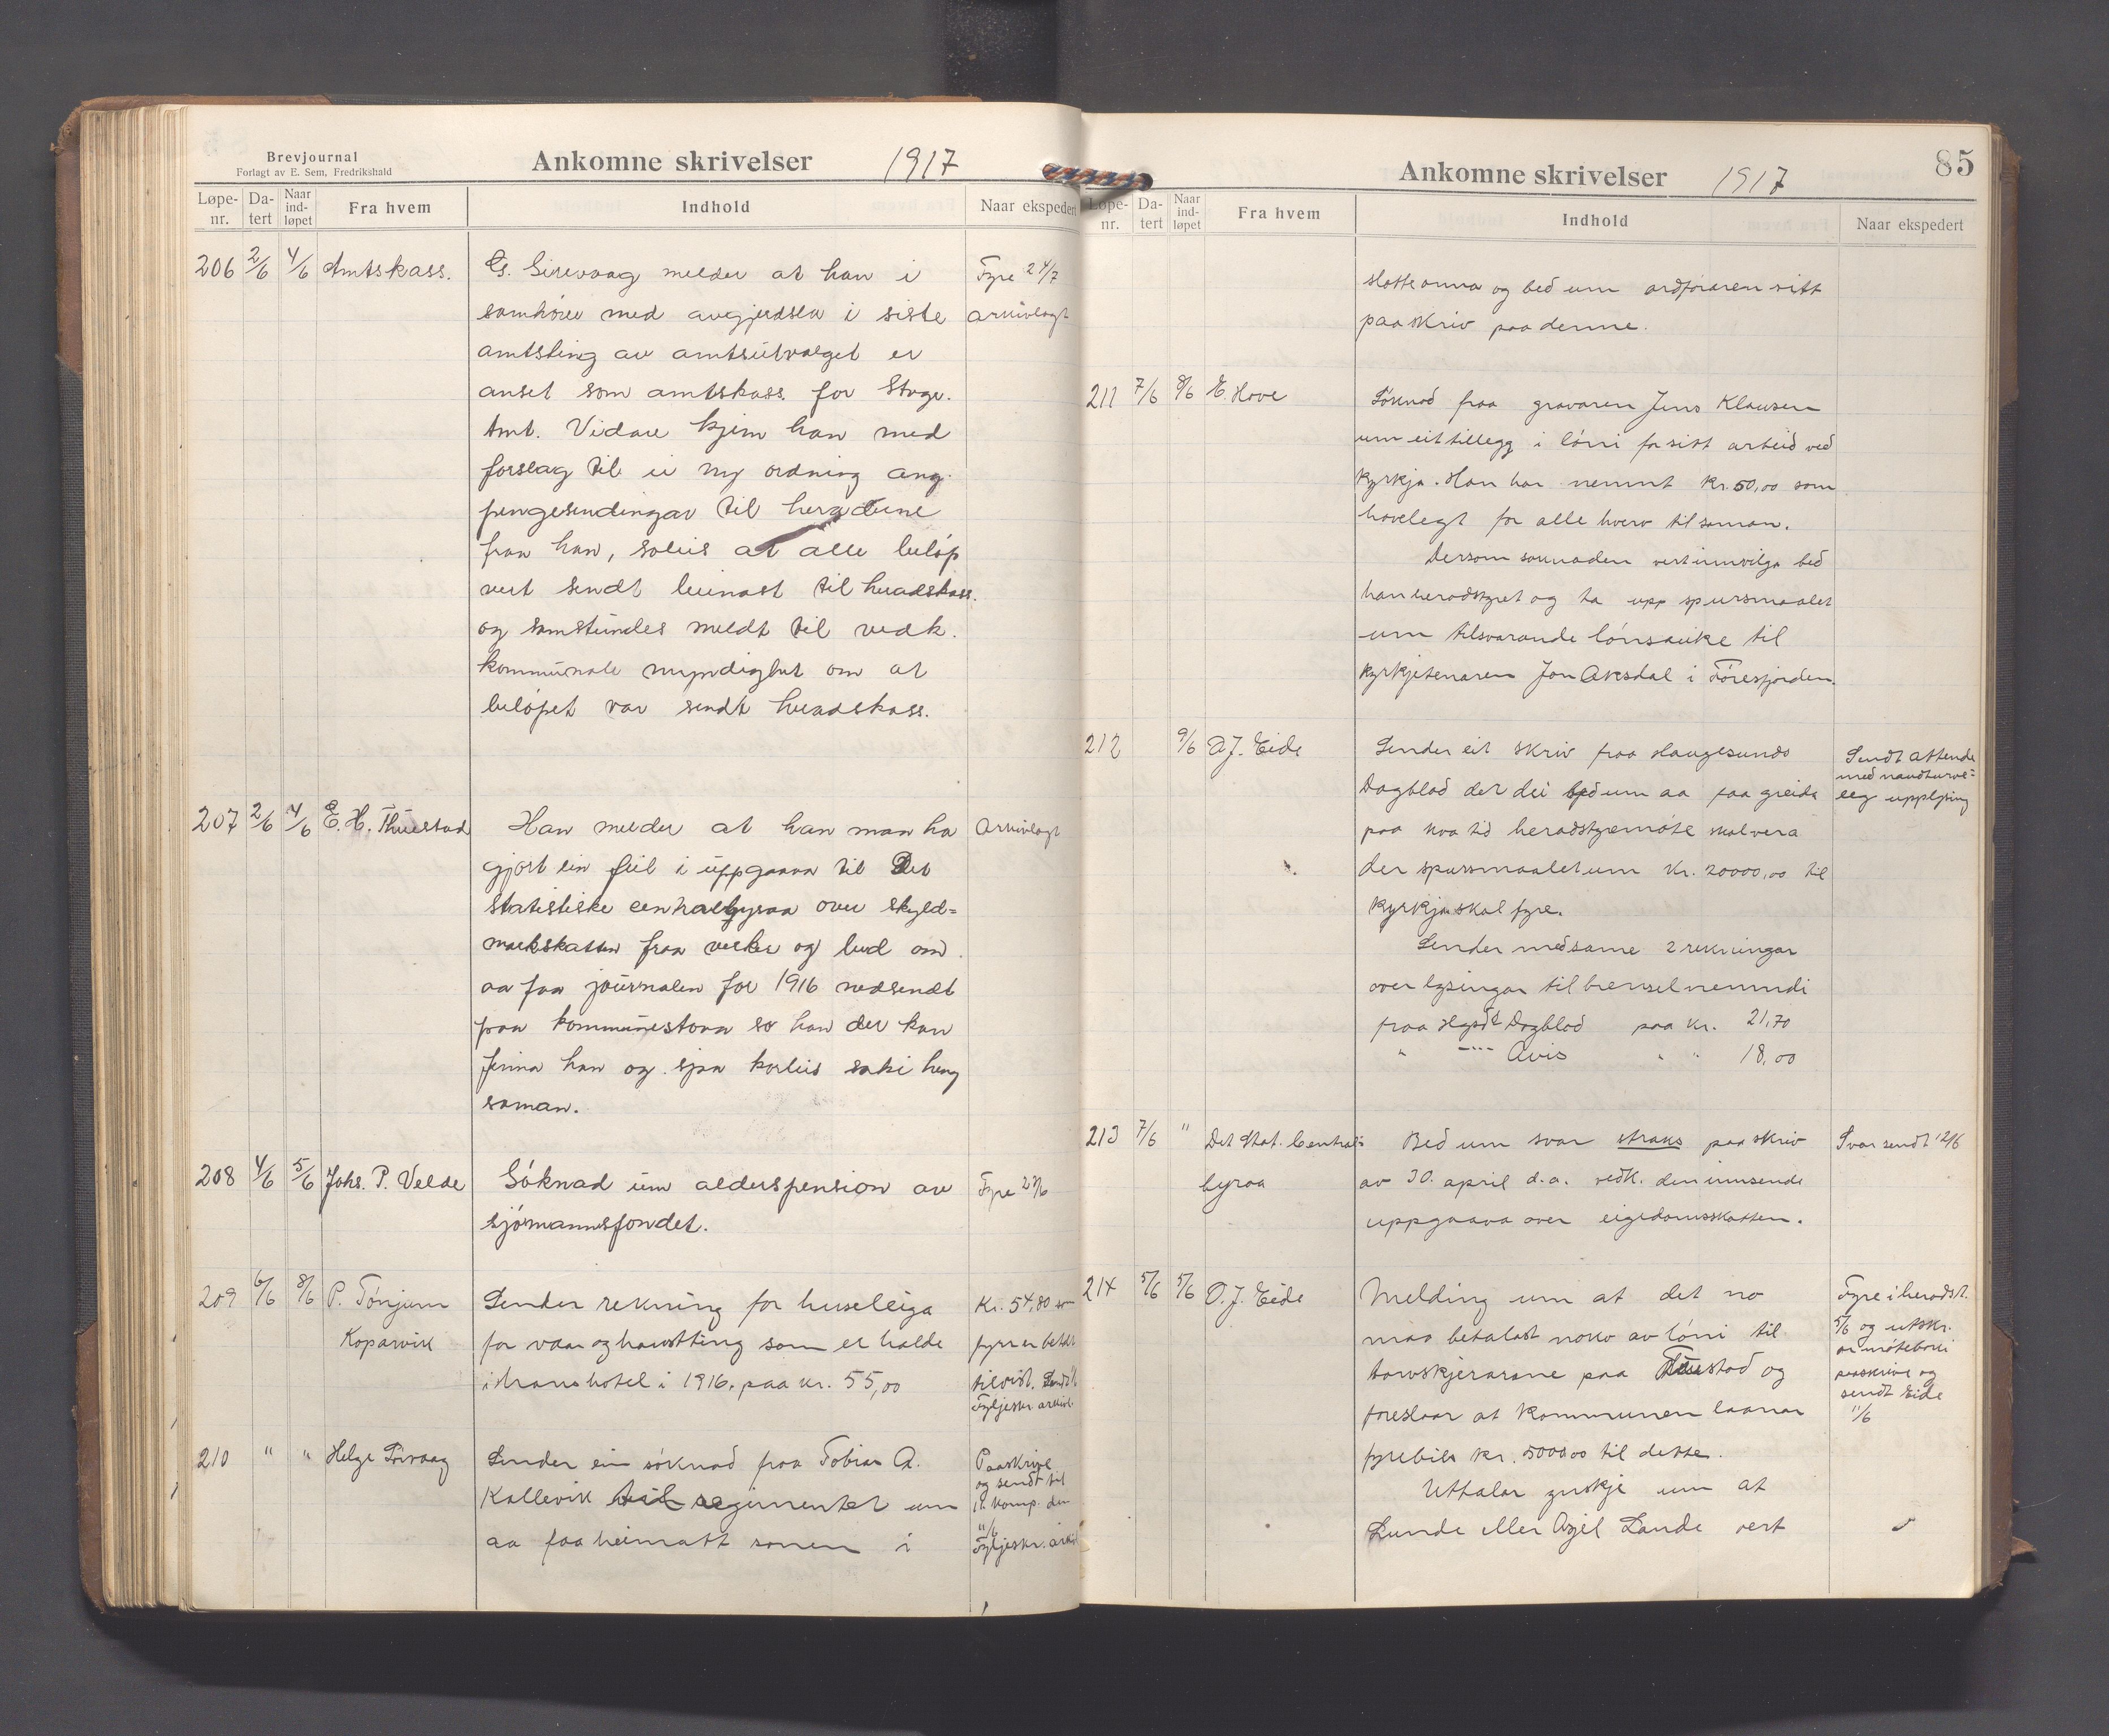 Brevjournal
Forlagt av E. Sem, Fredrikshald
Ankomne skrivelser 1917
Løpe-nr. Da-tert Naar ind-løpet Fra hvem Indhold Naar ekspedert
206 2/6 4/6 Amtskass. G. Sirevaag melder at han i Fyre 24/7
samhöve med avgjerdsla i siste arkivlagt
amtsting av amtsutvalget er
anset som amtskass. for Stvgr.
Amt. Vidare kjem han med
forslag til ei ny ordning ang.
pengesendingar til heradune
fraa han, soleis at alle belöp
vert sendt beinast til heradskass.
og samstundes meldt til vedk.
kommunale myndighet om at
belöpet var sendt heradskass.
207 2/6 4/6 E. H. Thuestad Han melder at han man ha Arkivlagt
gjort ein feil i uppgaava til Det
statistiske centralbyraa over skyld=
markskatten fraa verker og bed om
aa faa journalen for 1916 nedsendt
paa kommunestova so han der kan
finna han og sjaa korleis saki heng
saman.
208 4/6 5/6 Johs. P. Velde Söknad um alderspension av Fyre 2%
sjömannsfondet.
209 6/6 8/6 P. Tönjum Sender rekning for huseleiga Kr. 54,80 som
Koparvik for vaar og haustting som er halde fyrr er betalt
i hans hotel i 1916. paa kr. 55,00 tilvist. Sendt
Fyljeskr. arkivl.
210 " " Helge Sörvaag Sender ein söknad fraa Tobias A. Paaskrive
Kallevik til regimentet um og sendt til
komp. den
11/6
aa faa heimatt sonen i Fyljeskr. arkivl
Ankomne skrivelser 1917 85
Løpe-nr. Da-tert Naar ind-løpet Fra hvem Indhold Naar ekspedert
slaatteanna og bed um ordföraren sitt
paaskriv paa denne.
211 7/6 8/6 E. Hove Söknad fraa gravaren Jens Klausen
um eit tillegg i löni for sitt arbeid ved
kyrkja. Han har nemnt kr. 50,00 som
havelegt for alle hverv tilsaman.
Dersom soknaden vert innvilga bed
han heradstyret og ta upp spursmaalet
um tilsvarande lönsauke til
kyrkjetenaren Jon Avesdal i Föresfjorden.
212 9/6 O J. Eide Sender eit skriv fraa Haugesunds Sendt attende
med naudturve=
Dagblad der dei bed um aa faa greida leg upplysing
paa kva tid heradstyremöte skal vera
der spursmaalet um kr. 20000,00 til
kyrkja skal fyre.
Sender med same 2 rekningar
over lysingar til brenselnemndi
fraa Hgsds Dagblad paa kr. 21,70
" -"- Avis " " 18,00
213 7/6 " Det Stat. Central= Bed um svar straks paa skriv Svar sendt 12/6
byraa av 30. april d.a. vedk. den innsende
uppgaava over eigedomsskatten.
214 5/6 5/6 O. J. Eide Melding um at det no Fyre i heradst.
maa betalast noko av löni til 5/6 og utskr.
av möteboki
torvskjerarane paa Thuestad og paaskrive og
sendt Eide
foreslaar at kommunen laanar 11/6
fyrebils kr. 5000,00 til dette.
Uttalar ynskje um at
Lunde eller Azel Lande vert